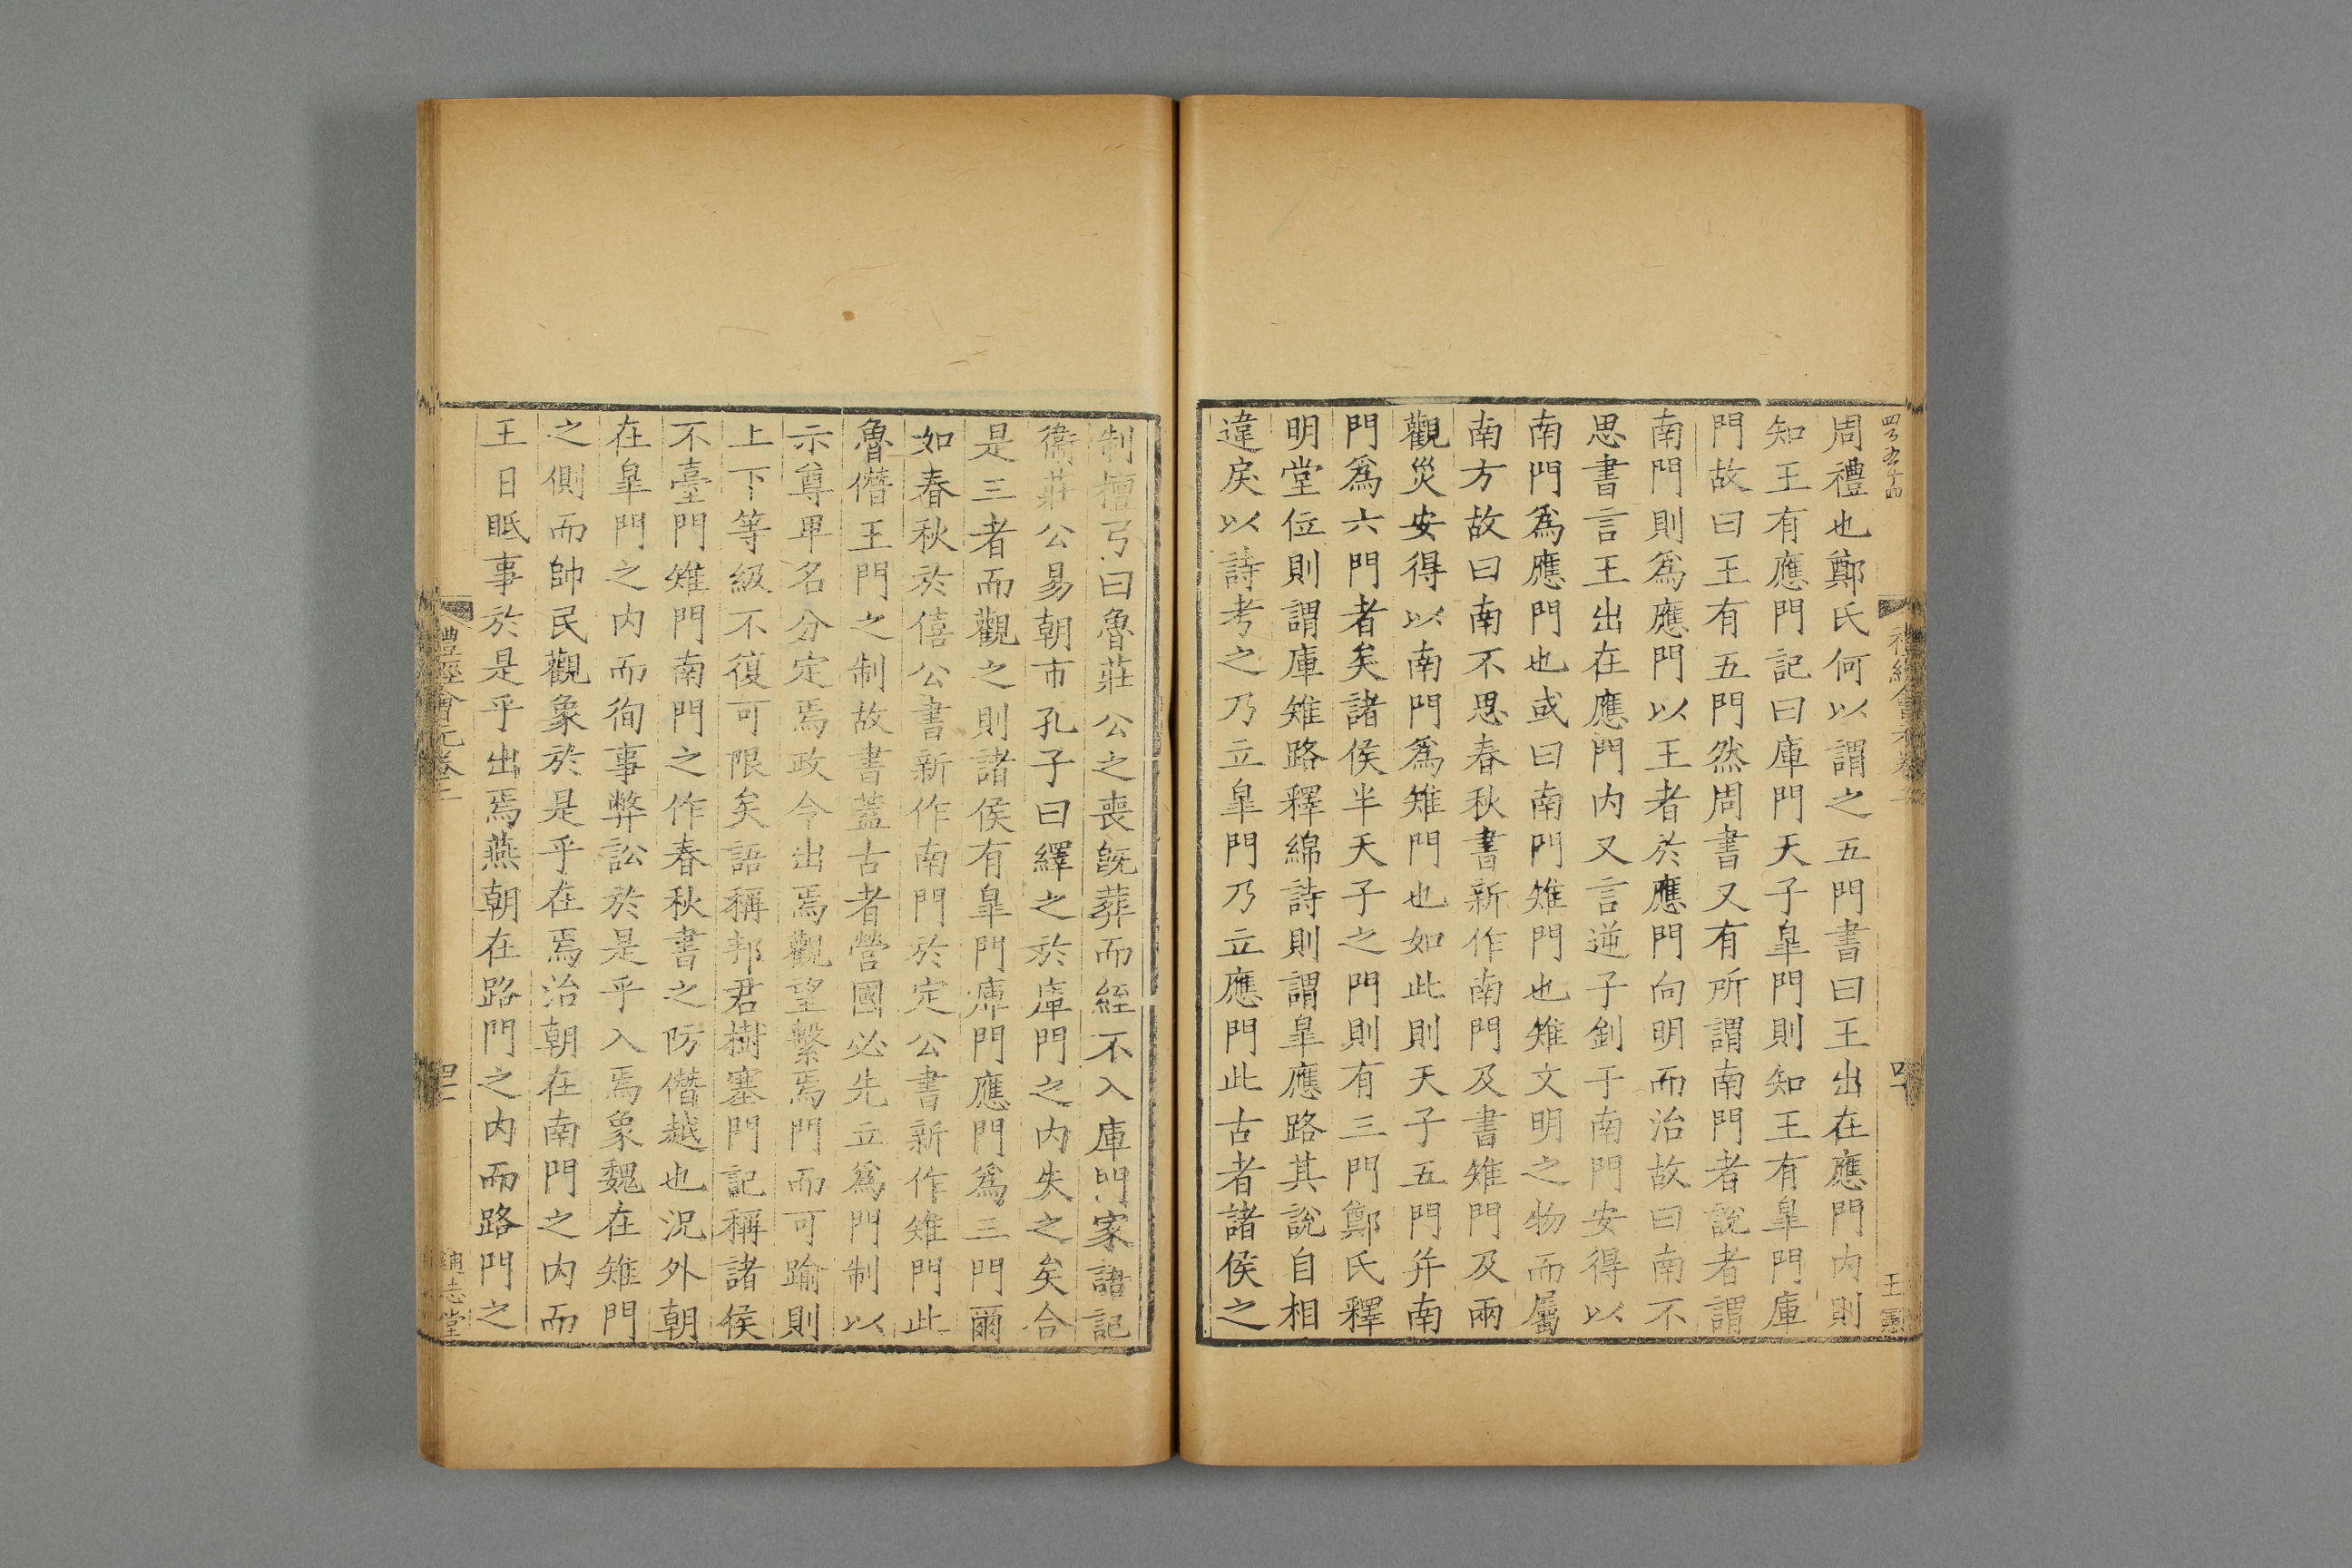 周禮也鄭氏何以謂之五門書曰王出在應門内則
知王有應門記曰庫門天子臯門則知王有臯門庫
門故曰王有五門然周書又有所謂南門者說者謂
南門則爲應門以王者於應門向明而治故曰南不
思書言王出在應門内又言逆子釗于南門安得以
南門爲應門也或曰南門雉門也雉文明之物而屬
南方故曰南不思春秋書新作南門及書雉門及兩
觀災安得以南門爲雉門也如此則天子五門并南
門爲六門者矣諸侯半天子之門則有三門鄭氏釋
明堂位則謂庫雉路釋綿詩則謂臯應路其說自相
違戾以詩考之乃立臯門乃立應門此古者諸侯之
制檀弓曰魯莊公之喪旣葬而絰不入庫門家語記
衞莊公易朝市孔子曰繹之於庫門之内失之矣合
是三者而觀之則諸侯有臯門庫門應門爲三門爾
如春秋於僖公書新作南門於定公書新作雉門此
魯僭王門之制故書蓋古者營國必先立爲門制以
示尊卑名分定焉政令出焉觀望繫焉門而可踰則
上下等級不復可限矣語稱邦君樹塞門記稱諸侯
不臺門雉門南門之作春秋書之防僭越也況外朝
在臯門之内而徇事弊訟於是乎入焉象魏在雉門
之側而帥民觀象於是乎在焉治朝在南門之内而
王日眡事於是乎出焉燕朝在路門之内而路門之
禮經會元卷二
通志堂